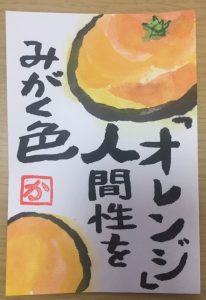 「オレンジ」
人間性を
みがく色
か